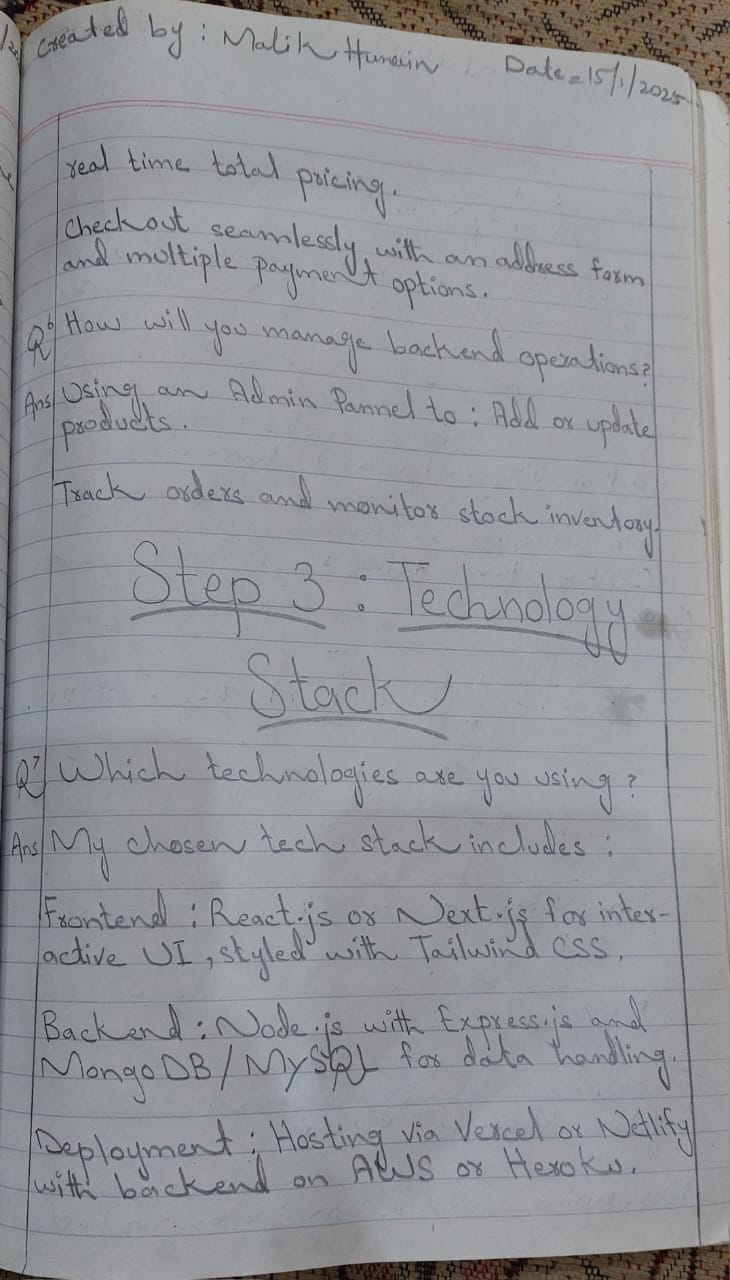 Created by : Malik Hunain Date = 15/1/2025
real time total pricing.
Checkout seamlessly with an address form
and multiple payment options.
Q6 How will you manage backend operations?
Ans Using an Admin Pannel to : Add or update
products.
Track orders and monitor stock inventory.
Step 3 : Technology
Stack
Q7 Which technologies are you using?
Ans My chosen tech stack includes :
Frontend : React.js or Next.js for inter-
active UI, styled with Tailwind CSS.
Backend : Node.js with Express.js and
MongoDB/MySQL for data handling.
Deployment : Hosting via Vercel or Netlify
with backend on AWS or Heroku.